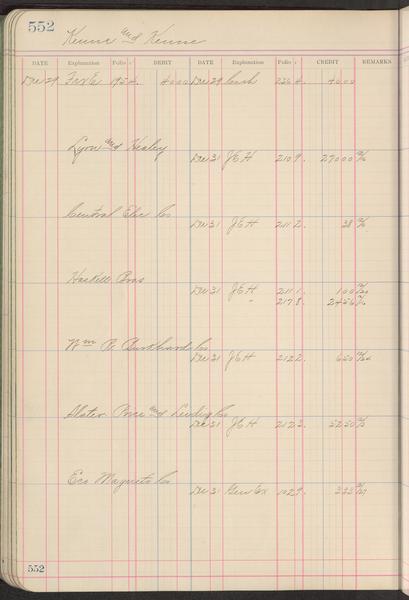 552
Kenna and Kenna
DATE Explanation Folio DEBIT DATE Explanation Folio CREDIT REMARKS
Dec 29 4000 Dec 29 Cash 236 4000
Lyon and Healey
Dec 31 JEH 2109 27000
Central Elec Co
Dec 31 JEH 2112 38
Haskell Bros
Dec 31 JEH 2111 100
" 2178 2456
Wm R Burkhard Co
Dec 31 JEH 2122 650
Slater Price and Co
Dec 31 JEH 2123 5250
Eco Magneto Co
Dec 31 Gen Ex 1029 333
552